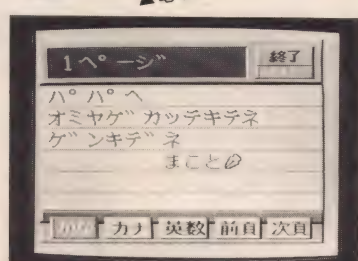 1ページ
終了
パパヘ
オミヤゲカッテキテネ
ゲンキデネ
まこと
かな カナ 英数 前頁 次頁